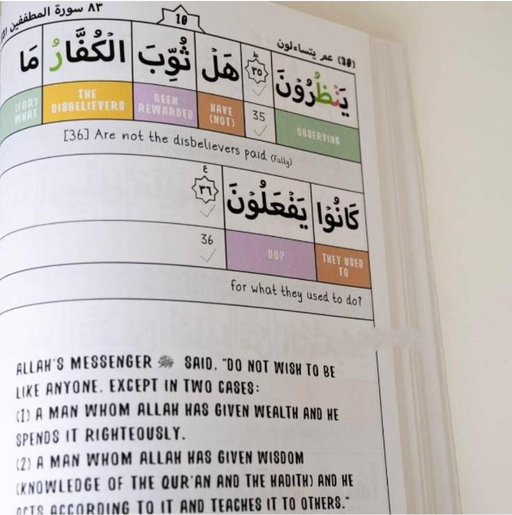 ٨٣ سورة المطففين
10
(٣٠) عم يتساءلون
يَنْظُرُوْنَ ٣٥ هَلْ ثُوِّبَ الْكُفَّارُ مَا
OBSERVING 35 HAVE (NOT) BEEN REWARDED THE DISBELIEVERS (FOR) WHAT
[36] Are not the disbelievers paid (fully)
كَانُوْا يَفْعَلُوْنَ ٣٦ ع
THEY USED TO DO? 36
for what they used to do?
ALLAH'S MESSENGER ﷺ SAID, "DO NOT WISH TO BE
LIKE ANYONE, EXCEPT IN TWO CASES:
(1) A MAN WHOM ALLAH HAS GIVEN WEALTH AND HE
SPENDS IT RIGHTEOUSLY.
(2) A MAN WHOM ALLAH HAS GIVEN WISDOM
(KNOWLEDGE OF THE QUR'AN AND THE HADITH) AND HE
ACTS ACCORDING TO IT AND TEACHES IT TO OTHERS."